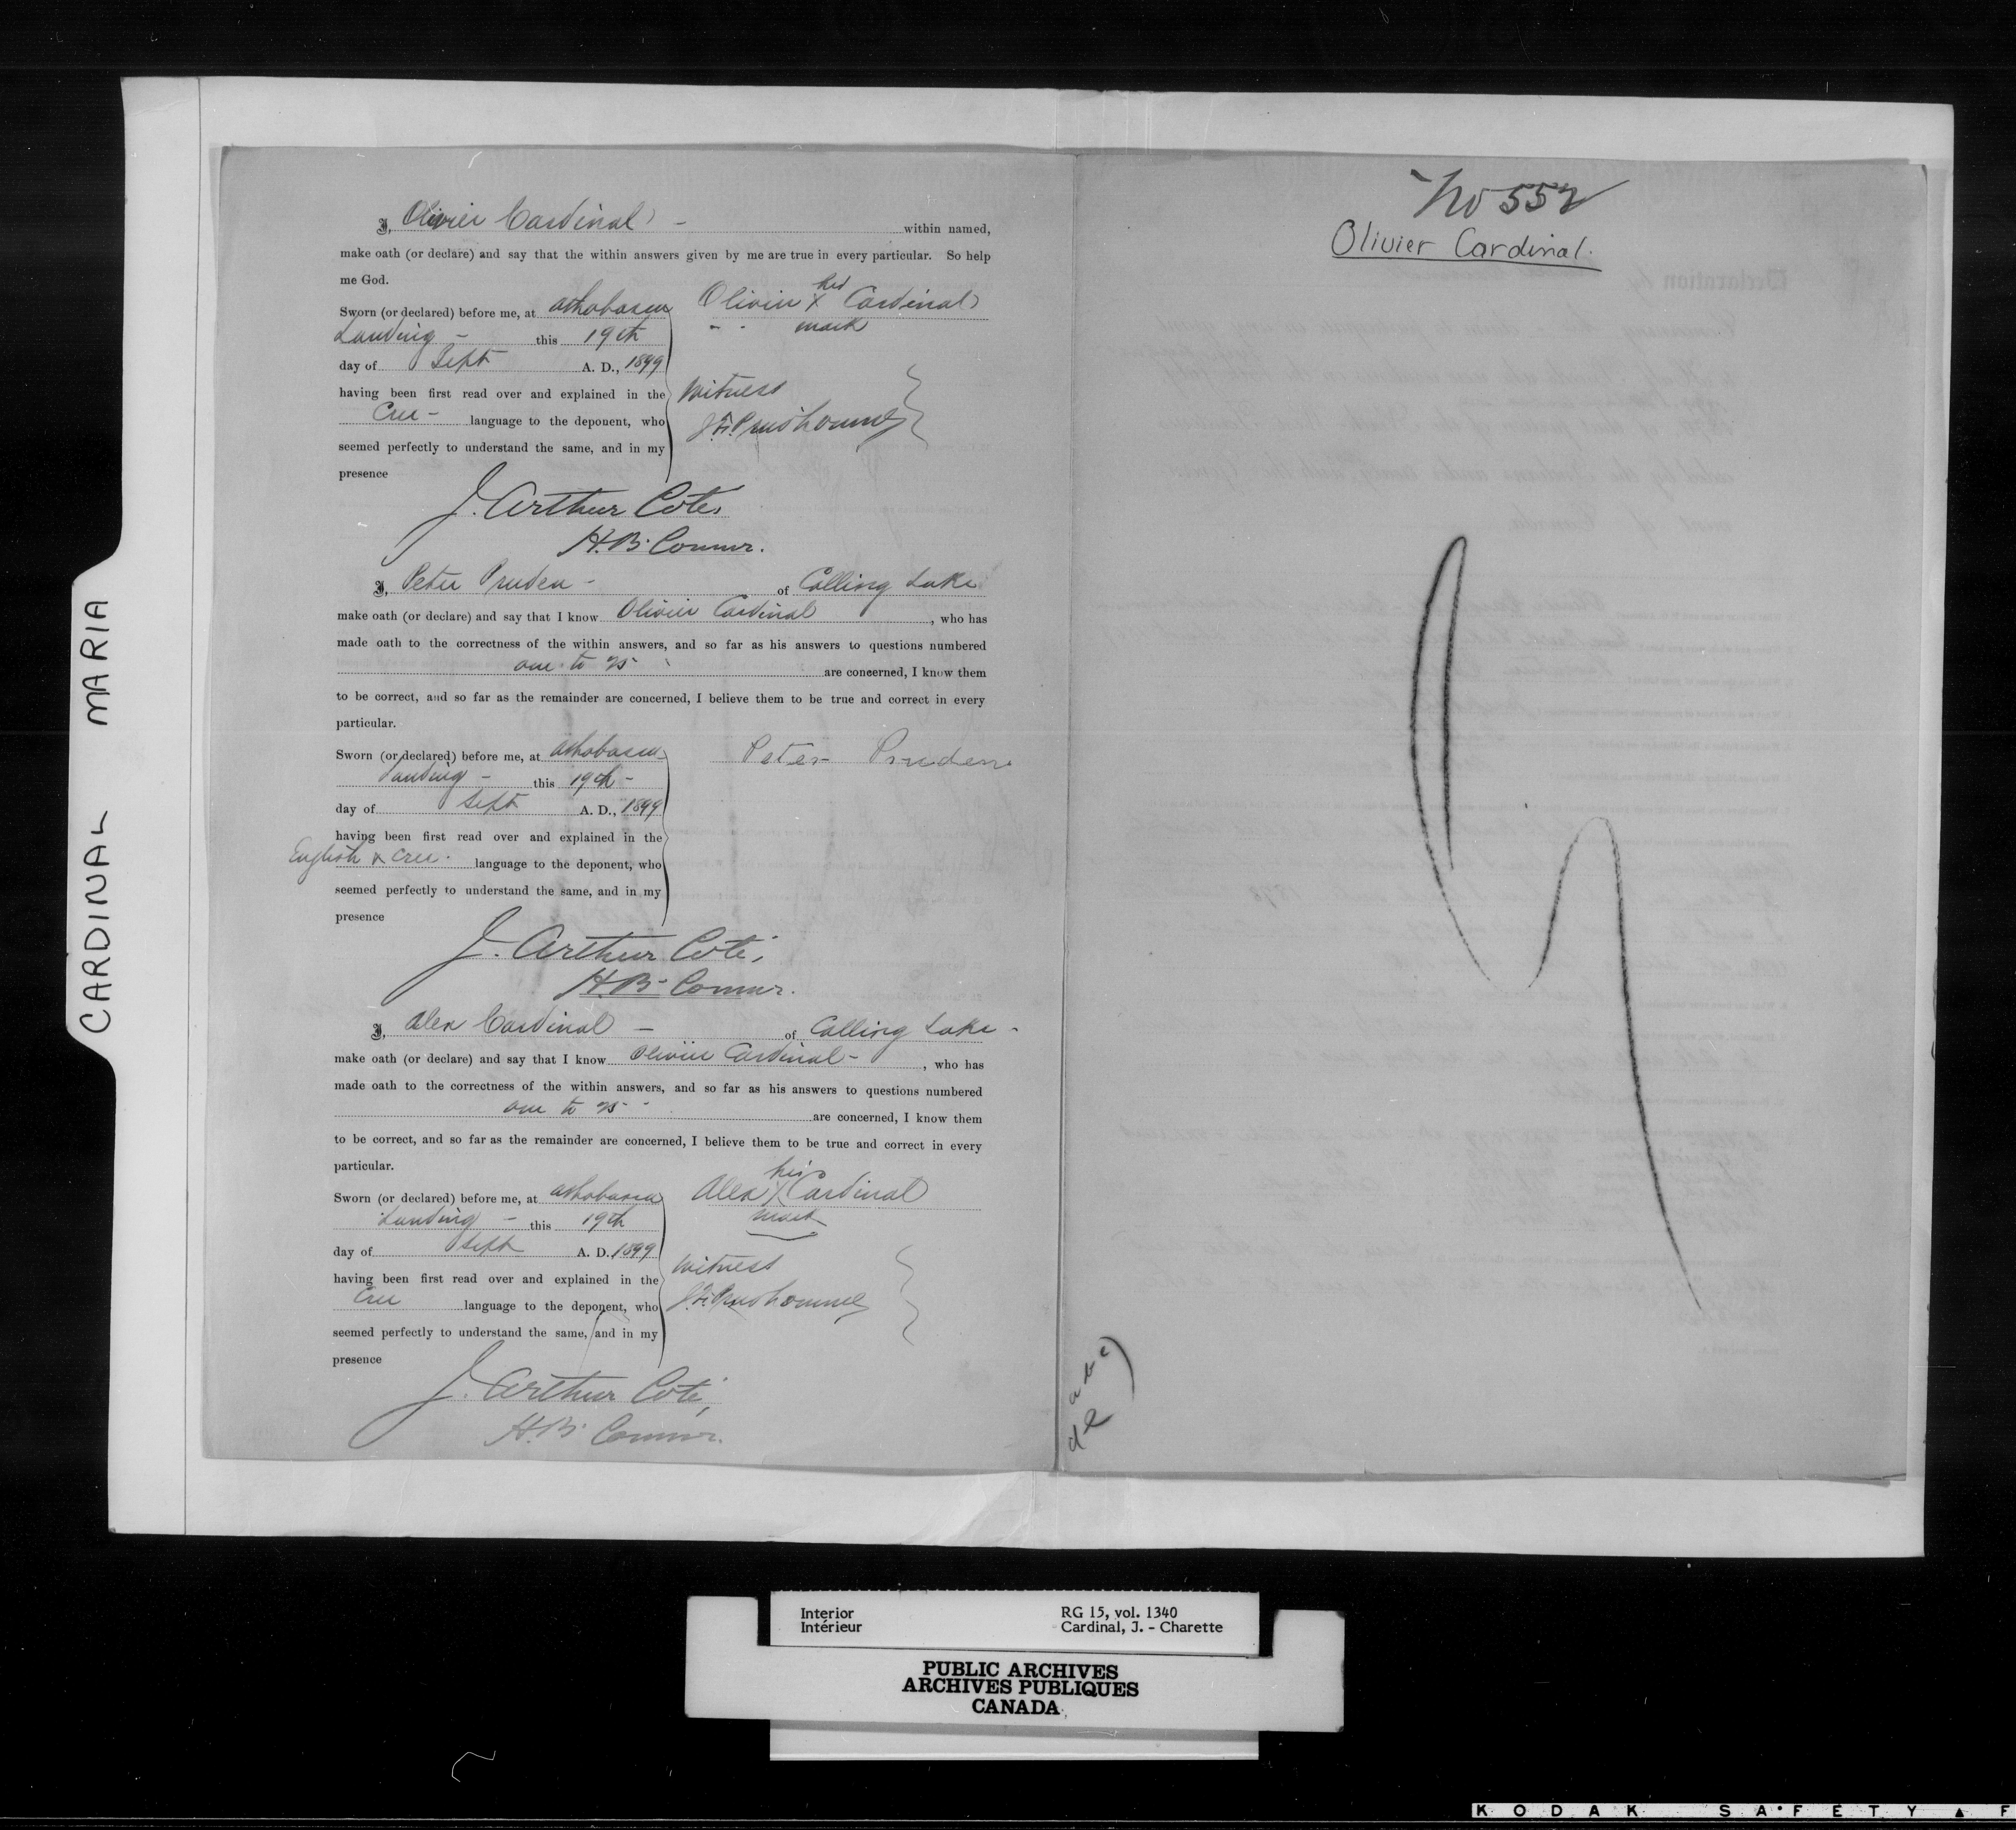 CARDINAL MARIA
I, Olivier Cardinal - within named,
make oath (or declare) and say that the within answers given by me are true in every particular. So help
me God.
Sworn (or declared) before me, at Athabasca
Landing - this 19th
day of Sept A. D., 1899
having been first read over and explained in the
Cree - language to the deponent, who
seemed perfectly to understand the same, and in my
presence
Olivier his X Cardinal
mark
Witness
J. Arthur Coté,
H.B. Commr.
I, Peter Pruden - of Calling Lake
make oath (or declare) and say that I know Olivier Cardinal, who has
made oath to the correctness of the within answers, and so far as his answers to questions numbered
one to 25 are concerned, I know them
to be correct, and so far as the remainder are concerned, I believe them to be true and correct in every
particular.
Sworn (or declared) before me, at Athabasca
Landing - this 19th -
day of Sept A. D., 1899
having been first read over and explained in the
English & Cree. language to the deponent, who
seemed perfectly to understand the same, and in my
presence
Peter Pruden
J. Arthur Coté,
H.B. Commr.
I, Alex Cardinal - of Calling Lake -
make oath (or declare) and say that I know Olivier Cardinal -, who has
made oath to the correctness of the within answers, and so far as his answers to questions numbered
one to 25 - are concerned, I know them
to be correct, and so far as the remainder are concerned, I believe them to be true and correct in every
particular.
Sworn (or declared) before me, at Athabasca
Landing - this 19th
day of Sept A. D. 1899
having been first read over and explained in the
Cree language to the deponent, who
seemed perfectly to understand the same, and in my
presence
Alex his X Cardinal
mark
Witness
J. Arthur Coté,
H.B. Commr.
No 552
Olivier Cardinal.
Interior RG 15, vol. 1340
Intérieur Cardinal, J. - Charette
PUBLIC ARCHIVES
ARCHIVES PUBLIQUES
CANADA
KODAK SAFETY F